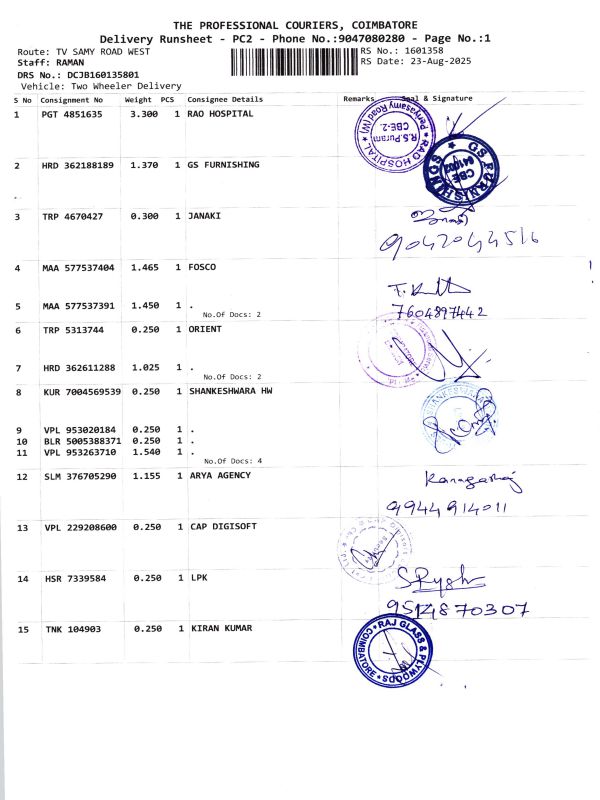 THE PROFESSIONAL COURIERS, COIMBATORE
Delivery Runsheet - PC2 - Phone No.:9047080280 - Page No.:1
Route: TV SAMY ROAD WEST
RS No.: 1601358
Staff: RAMAN
RS Date: 23-Aug-2025
DRS No.: DCJB160135801
Vehicle: Two Wheeler Delivery
S No Consignment No Weight PCS Consignee Details Remarks Seal & Signature
1 PGT 4851635 3.300 1 RAO HOSPITAL
RAO HOSPITAL
R.S.Puram
CBE-2.
Periyasamy Road (W)
2 HRD 362188189 1.370 1 GS FURNISHING
GS FURNISHINGS
CBE
641002
3 TRP 4670427 0.300 1 JANAKI
9042044516
4 MAA 577537404 1.465 1 FOSCO
5 MAA 577537391 1.450 1 .
7604897442
No.Of Docs: 2
6 TRP 5313744 0.250 1 ORIENT
7 HRD 362611288 1.025 1 .
No.Of Docs: 2
8 KUR 7004569539 0.250 1 SHANKESHWARA HW
SHANKESHWARA
9 VPL 953020184 0.250 1 .
10 BLR 5005388371 0.250 1 .
11 VPL 953263710 1.540 1 .
No.Of Docs: 4
12 SLM 376705290 1.155 1 ARYA AGENCY
9944914011
13 VPL 229208600 0.250 1 CAP DIGISOFT
14 HSR 7339584 0.250 1 LPK
9514870307
15 TNK 104903 0.250 1 KIRAN KUMAR
RAJ GLASS & PLYWOODS
COIMBATORE